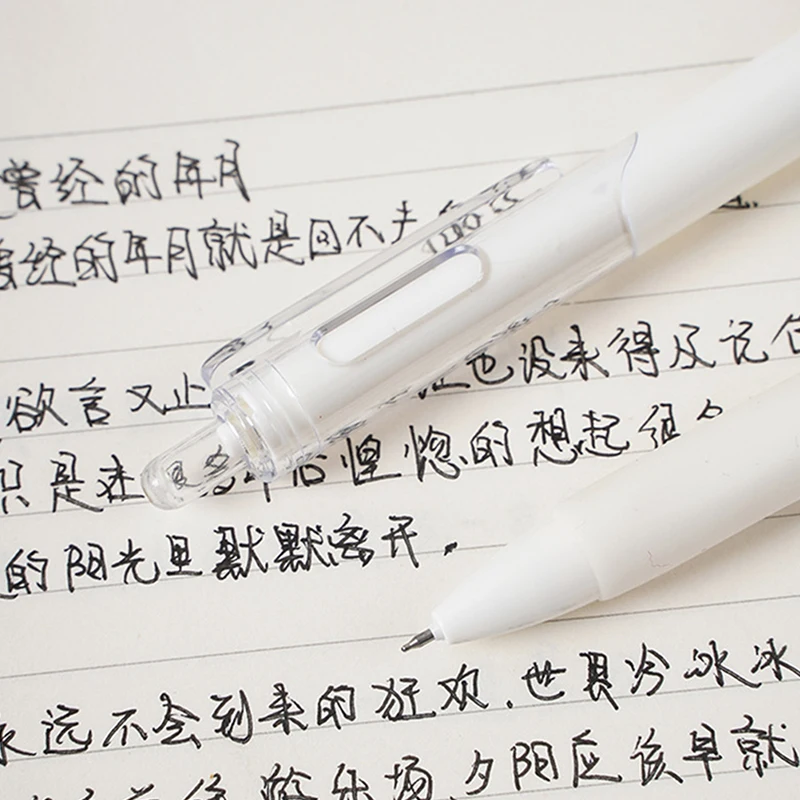 曾经的年月
曾经的年月就是回不去
欲言又止 也没来得及记住
只是在 后惶惚的想起
的阳光里默默离开.
永远不会到来的狂欢.世界冷冰冰
游乐场.夕阳应该早就